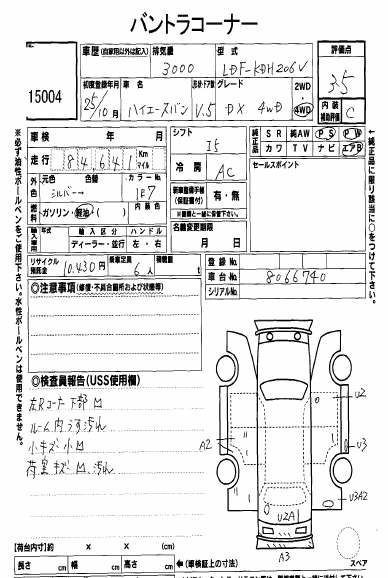 バントラコーナー
15004
車歴(自家用以外は記入)
排気量
型式
評価点
3000
LDF-KDH206V
3.5
初度登録年月
車名
形状・ドア数
グレード
2WD
4WD
25/10月
ハイエースバン
V.5
DX 4WD
内装
補助評価
C
車検 年 月
シフト
I5
純正品
PS
PW
純AW
SR
カワ
TV
ナビ
エアB
走行
8 4 6 4 1
Km
マイル
冷房
AC
セールスポイント
外色
元色
色替
カラーNo.
シルバー→
1E7
新車整備手帳
(保証書付)
有・無
※書類と一緒に保管下さい。
燃料
ガソリン・軽油・( )
内装色
名義変更期限
月 日
輸入車用
年式
輸入区分
ハンドル
ディーラー・並行
左・右
リサイクル
預託金
10,430円
乗車定員
6人
積載量
t
登録No.
車台No.
8066740
シリアルNo.
◎注意事項(修復・不具合箇所および改造等)
◎検査員報告(USS使用欄)
左Rコーナー下部凹
ルーム内うす汚れ
小キズ小凹
荷室キズ凹、汚れ
A2
U2
U3
U3A2
U2A1
A3
スペア
【荷台内寸】 x x (cm)
長さ cm 幅 cm 高さ cm
(車検証上の寸法)
※必ず油性ボールペンをご使用下さい。水性ボールペンは使用できません。
※純正品に限り該当に○をつけて下さい。